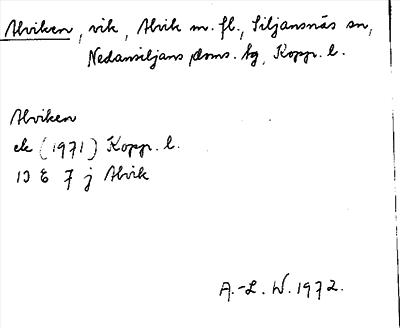 Alviken, vik, Alvik m. fl., Siljansnäs sn,
Nedansiljans doms. hg, Kopp. l.
Alviken
ek (1971) Kopp. l.
13 E 7 j Alvik
A.-L. W. 1972.